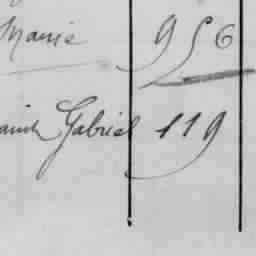 Marie 956
Saint Gabriel 119